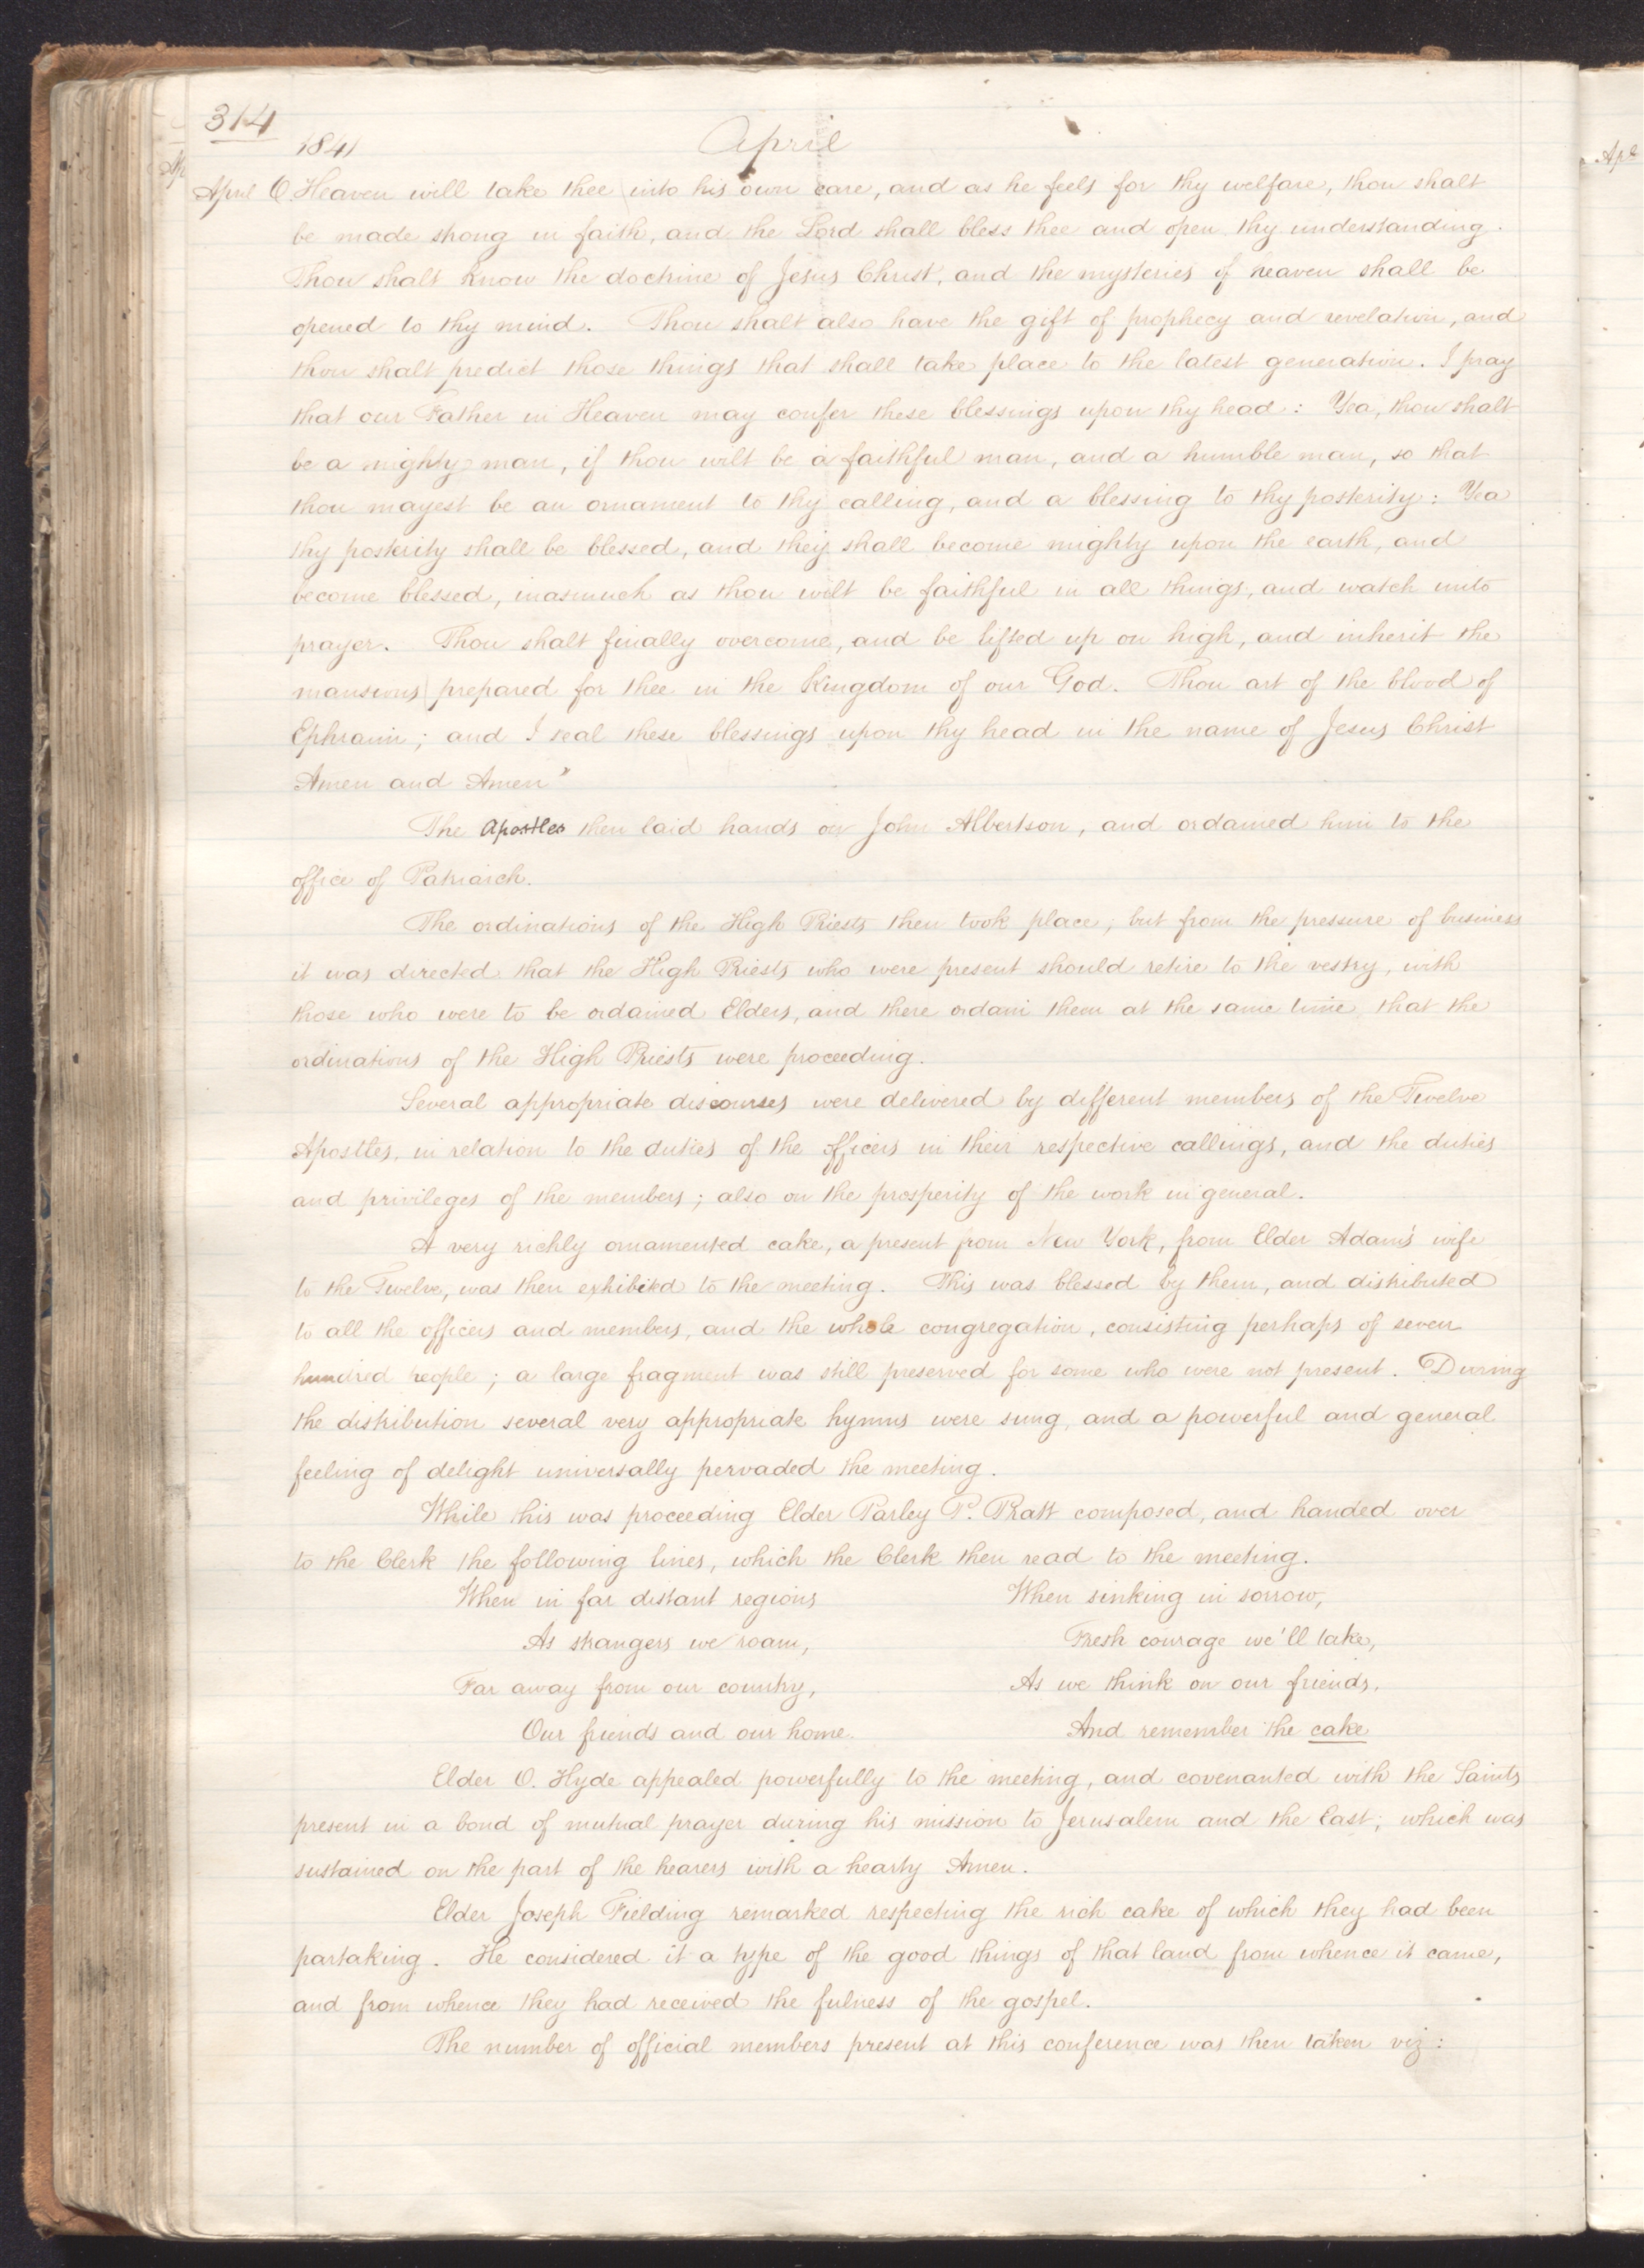 314
1841
April
April 6 Heaven will take thee into his own care, and as he feels for thy welfare, thou shalt
be made strong in faith, and the Lord shall bless thee and open thy understanding.
Thou shalt know the doctrine of Jesus Christ, and the mysteries of heaven shall be
opened to thy mind. Thou shalt also have the gift of prophecy and revelation, and
thou shalt predict those things that shall take place to the latest generation. I pray
that our Father in Heaven may confer these blessings upon thy head: Yea, thou shalt
be a mighty man, if thou wilt be a faithful man, and a humble man, so that
thou mayest be an ornament to thy calling, and a blessing to thy posterity: Yea
thy posterity shall be blessed, and they shall become mighty upon the earth, and
become blessed, inasmuch as thou wilt be faithful in all things, and watch unto
prayer. Thou shalt finally overcome, and be lifted up on high, and inherit the
mansions prepared for thee in the Kingdom of our God. Thou art of the blood of
Ephraim; and I seal these blessings upon thy head in the name of Jesus Christ
Amen and Amen"
The Apostles then laid hands on John Albertson, and ordained him to the
office of Patriarch.
The ordinations of the High Priests then took place; but from the pressure of business
it was directed that the High Priests who were present should retire to the vestry, with
those who were to be ordained Elders, and there ordain them at the same time that the
ordinations of the High Priests were proceeding.
Several appropriate discourses were delivered by different members of the Twelve
Apostles, in relation to the duties of the officers in their respective callings, and the duties
and privileges of the members; also on the prosperity of the work in general.
A very richly ornamented cake, a present from New York, from Elder Adam's wife
to the Twelve, was then exhibited to the meeting. This was blessed by them, and distributed
to all the officers and members, and the whole congregation, consisting perhaps of seven
hundred people; a large fragment was still preserved for some who were not present. During
the distribution several very appropriate hymns were sung, and a powerful and general
feeling of delight universally pervaded the meeting.
While this was proceeding Elder Parley P. Pratt composed, and handed over
to the Clerk the following lines, which the Clerk then read to the meeting.
When in far distant regions
As strangers we roam,
Far away from our country,
Our friends and our home.
When sinking in sorrow,
Fresh courage we'll take,
As we think on our friends,
And remember the cake
Elder O. Hyde appealed powerfully to the meeting, and covenanted with the Saints
present in a bond of mutual prayer during his mission to Jerusalem and the East; which was
sustained on the part of the hearers with a hearty Amen.
Elder Joseph Fielding remarked respecting the rich cake of which they had been
partaking. He considered it a type of the good things of that land from whence it came,
and from whence they had received the fulness of the gospel.
The number of official members present at this conference was then taken viz: